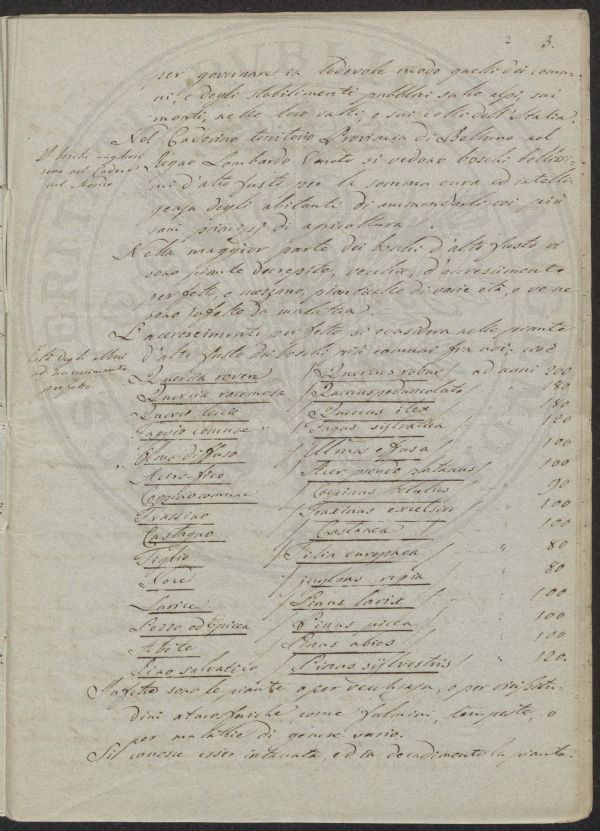 3.
per governare in lodevole modo quelli dei comu-
ni, e degli stabilimenti pubblici sulle alpi, sui
monti, nelle loro valli, o sui colli dell'Italia.
Nel Cadorino territorio Provincia di Belluno nel
Regno Lombardo Veneto si vedono boschi bellissi-
mi d'alto fusto per la somma cura ed intelli-
genza degli abitanti di ammendarli coi più
sani principj di agricoltura.
I boschi migliori
sono nel Cadore
nel
Nella maggior parte dei boschi d'alto fusto vi
sono piante decrepite, vecchie, d'accrescimento
perfetto, o mezzano, pianticelle di varie età, e ve ne
sono infette da malattia.
L'accrescimento perfetto si considera nelle piante
d'alto fusto dei boschi più comuni fra noi, cioè
Età degli alberi
ad accrescimento
perfetto
Quercia rovera / Quercus robur ad anni 200
Quercia racemosa / Quercus pedunculata / " 180
Quercia leccio / Quercus ilex " 180
Faggio comune / Fagus sylvatica 120
Olmo diffuso / Ulmus effusa / 100
Acero fico / Acer pseudo platanus / 100
Carpino comune / Carpinus betulus 90
Frassino / Fraxinus excelsior " 100
Castagno / Castanea / 100
Tiglio / Tilia europaea / " 80
Noce / juglans regia / " 80
Larice / Pinus larix / 100
Pezzo od Epicea / Pinus picea / 100
Abete / Pinus abies / " 100
Pino salvatico / Pinus sylvestris / " 120.
Infette sono le piante o per vecchiezza, o per vicissitu-
dini atmosferiche come fulmini, tempeste, o
per malattie di genere vario.
Si conosce esser intaccata, ed in decadimento la pianta